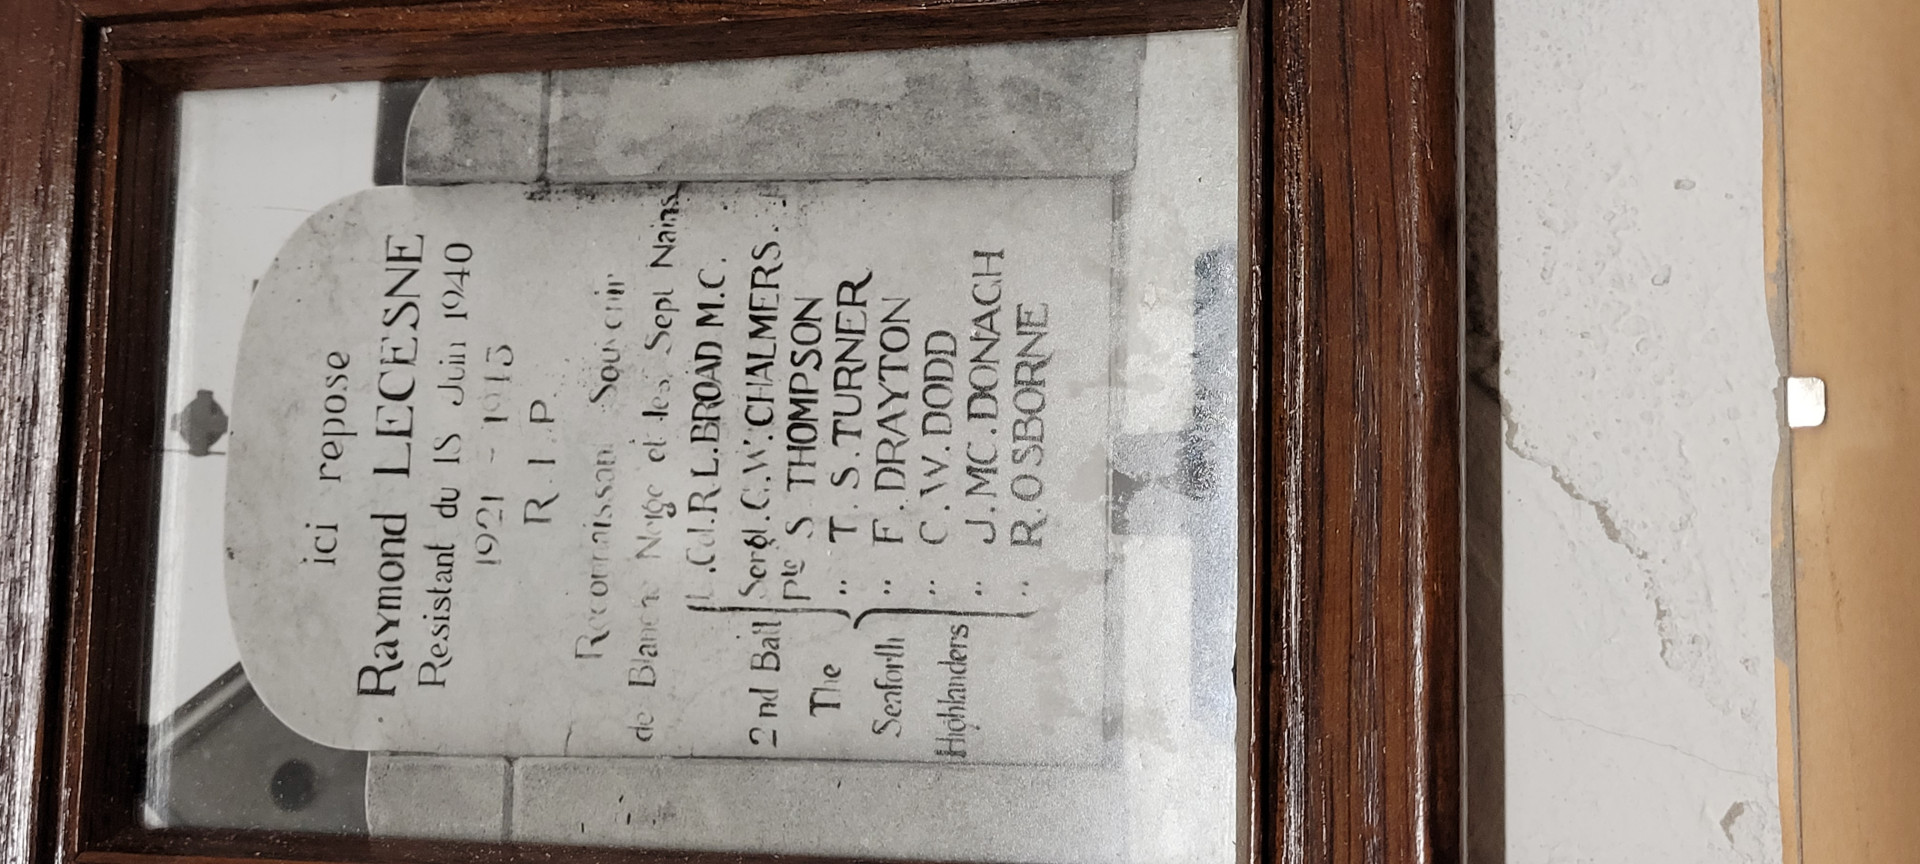 ici repose
Raymond LECESNE
Resistant du 18 Juin 1940
1921 - 1943
R. I. P.
Reconnaissant Souvenir
de Blanche Neige et les Sept Nains
Col. R. L. BROAD M.C.
2nd Batt Sergt. G. W. CHALMERS.
Pte S THOMPSON
The " T. S. TURNER
Seaforth " F. DRAYTON
" C. W. DODD
Highlanders " J. MC. DONAGH
" R. OSBORNE